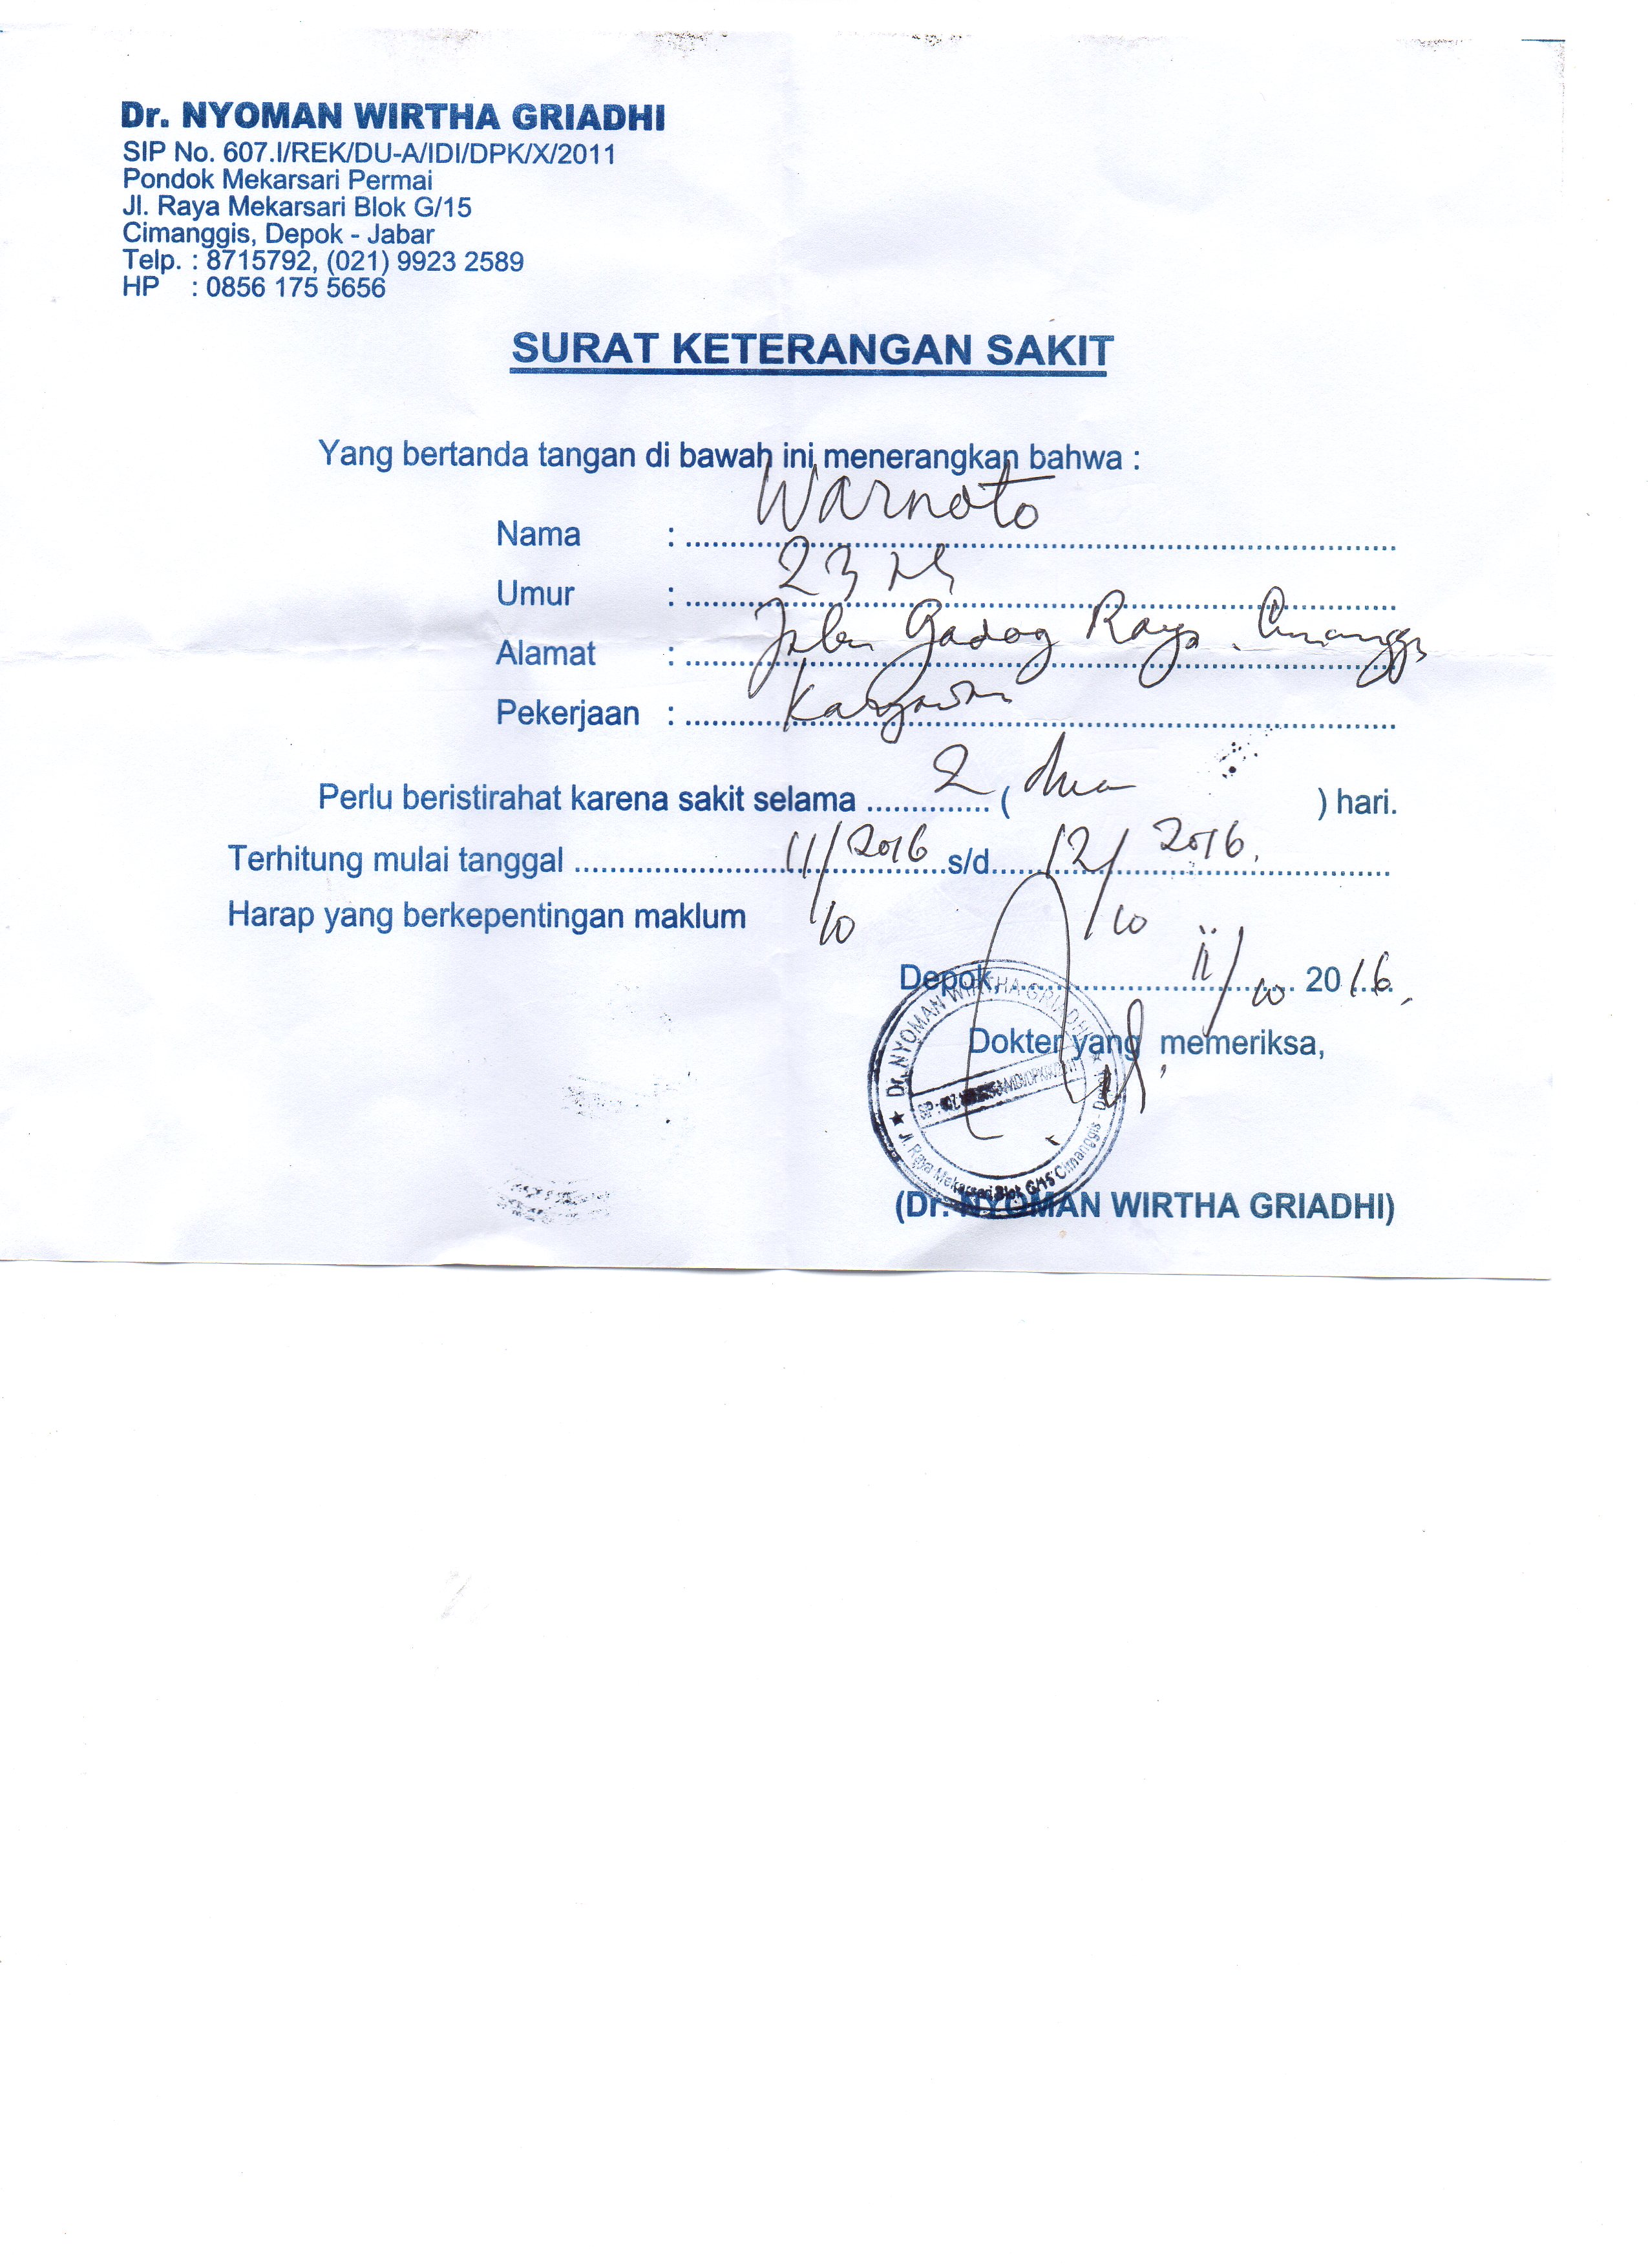 Dr. NYOMAN WIRTHA GRIADHI
SIP No. 607.I/REK/DU-A/IDI/DPK/X/2011
Pondok Mekarsari Permai
Jl. Raya Mekarsari Blok G/15
Cimanggis, Depok - Jabar
Telp. : 8715792, (021) 9923 2589
HP : 0856 175 5656
SURAT KETERANGAN SAKIT
Yang bertanda tangan di bawah ini menerangkan bahwa :
Nama : Warnoto
Umur : 23
Alamat : Gadog Raya. Cimanggis
Pekerjaan : Karyawan
Perlu beristirahat karena sakit selama 2 ( dua ) hari.
Terhitung mulai tanggal 11/10 2016 s/d 12/10 2016.
Harap yang berkepentingan maklum
Depok, 11/10 2016.
Dokter yang memeriksa,
Dr. NYOMAN WIRTHA GRIADHI
Jl. Raya Mekarsari Blok G/15 Cimanggis -
(Dr. NYOMAN WIRTHA GRIADHI)